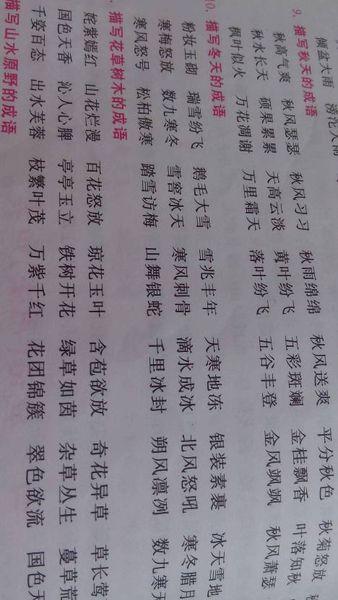 倾盆大雨 滂沱大雨
9. 描写秋天的成语
秋高气爽 秋风瑟瑟 秋风习习 秋雨绵绵 秋风送爽 平分秋色 秋菊怒放
秋水长天 硕果累累 天高云淡 黄叶纷飞 五彩斑斓 金桂飘香 叶落知秋
枫叶似火 万花凋谢 万里霜天 落叶纷飞 五谷丰登 金风飒飒 秋风萧瑟
10. 描写冬天的成语
粉妆玉砌 瑞雪纷飞 鹅毛大雪 雪兆丰年 天寒地冻 银装素裹 冰天雪地
寒梅怒放 数九寒冬 雪窖冰天 寒风刺骨 滴水成冰 北风怒吼 寒冬腊月
寒风怒号 松柏傲寒 踏雪访梅 山舞银蛇 千里冰封 朔风凛冽 数九寒天
描写花草树木的成语
姹紫嫣红 山花烂漫 百花怒放 琼花玉叶 含苞欲放 奇花异草 草长莺
国色天香 沁人心脾 亭亭玉立 铁树开花 绿草如茵 杂草丛生 蔓草荒
千姿百态 出水芙蓉 枝繁叶茂 万紫千红 花团锦簇 翠色欲流 国色天
描写山水原野的成语